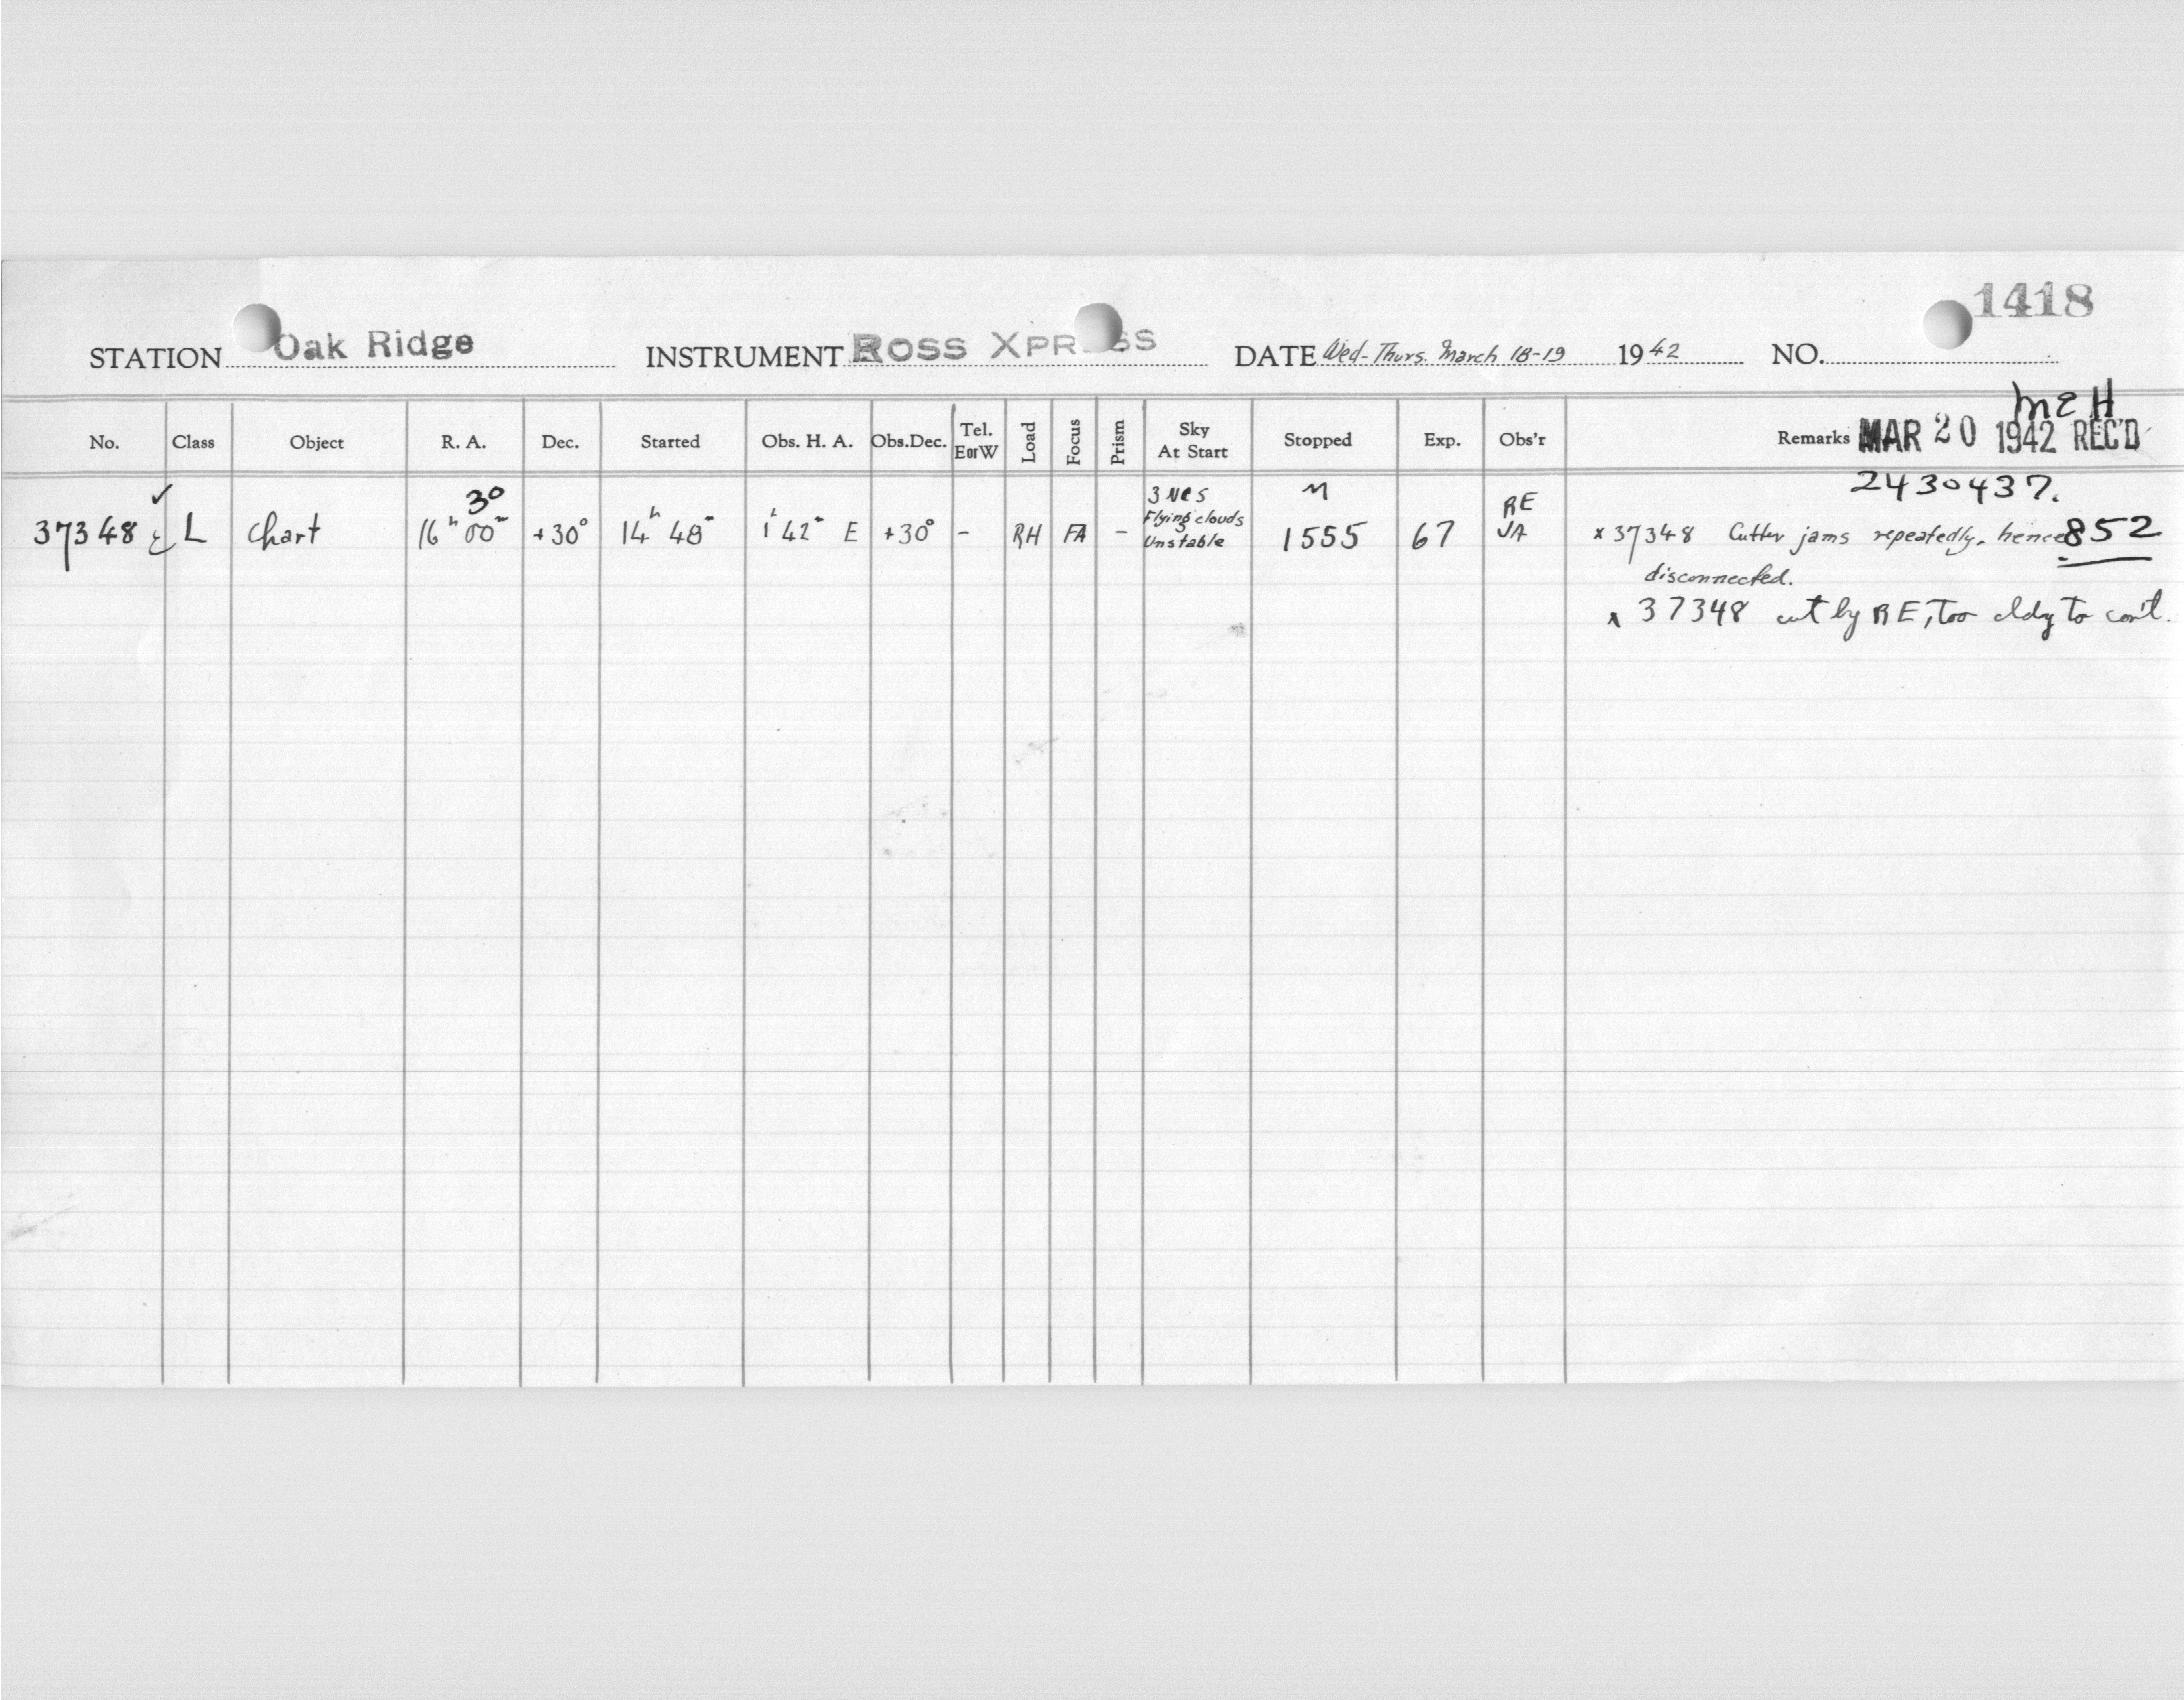 1418
STATION Oak Ridge INSTRUMENT ROSS XPR SS DATE Wed-Thurs. March 18-19 1942 NO.
MEH
No. Class Object R. A. Dec. Started Obs. H. A. Obs.Dec. Tel. E or W Load Focus Prism Sky At Start Stopped Exp. Obs'r Remarks MAR 20 1942 REC'D
2430437.
✓ 30 3 NCS M RE
37348 L Chart 16h 00m +30° 14h 48m 1h 42m E +30° - RH FA - Flying clouds 1555 67 JA x 37348 Cutter jams repeatedly, hence 852
Unstable
disconnected.
x 37348 cut by RE, too cldy to con't.